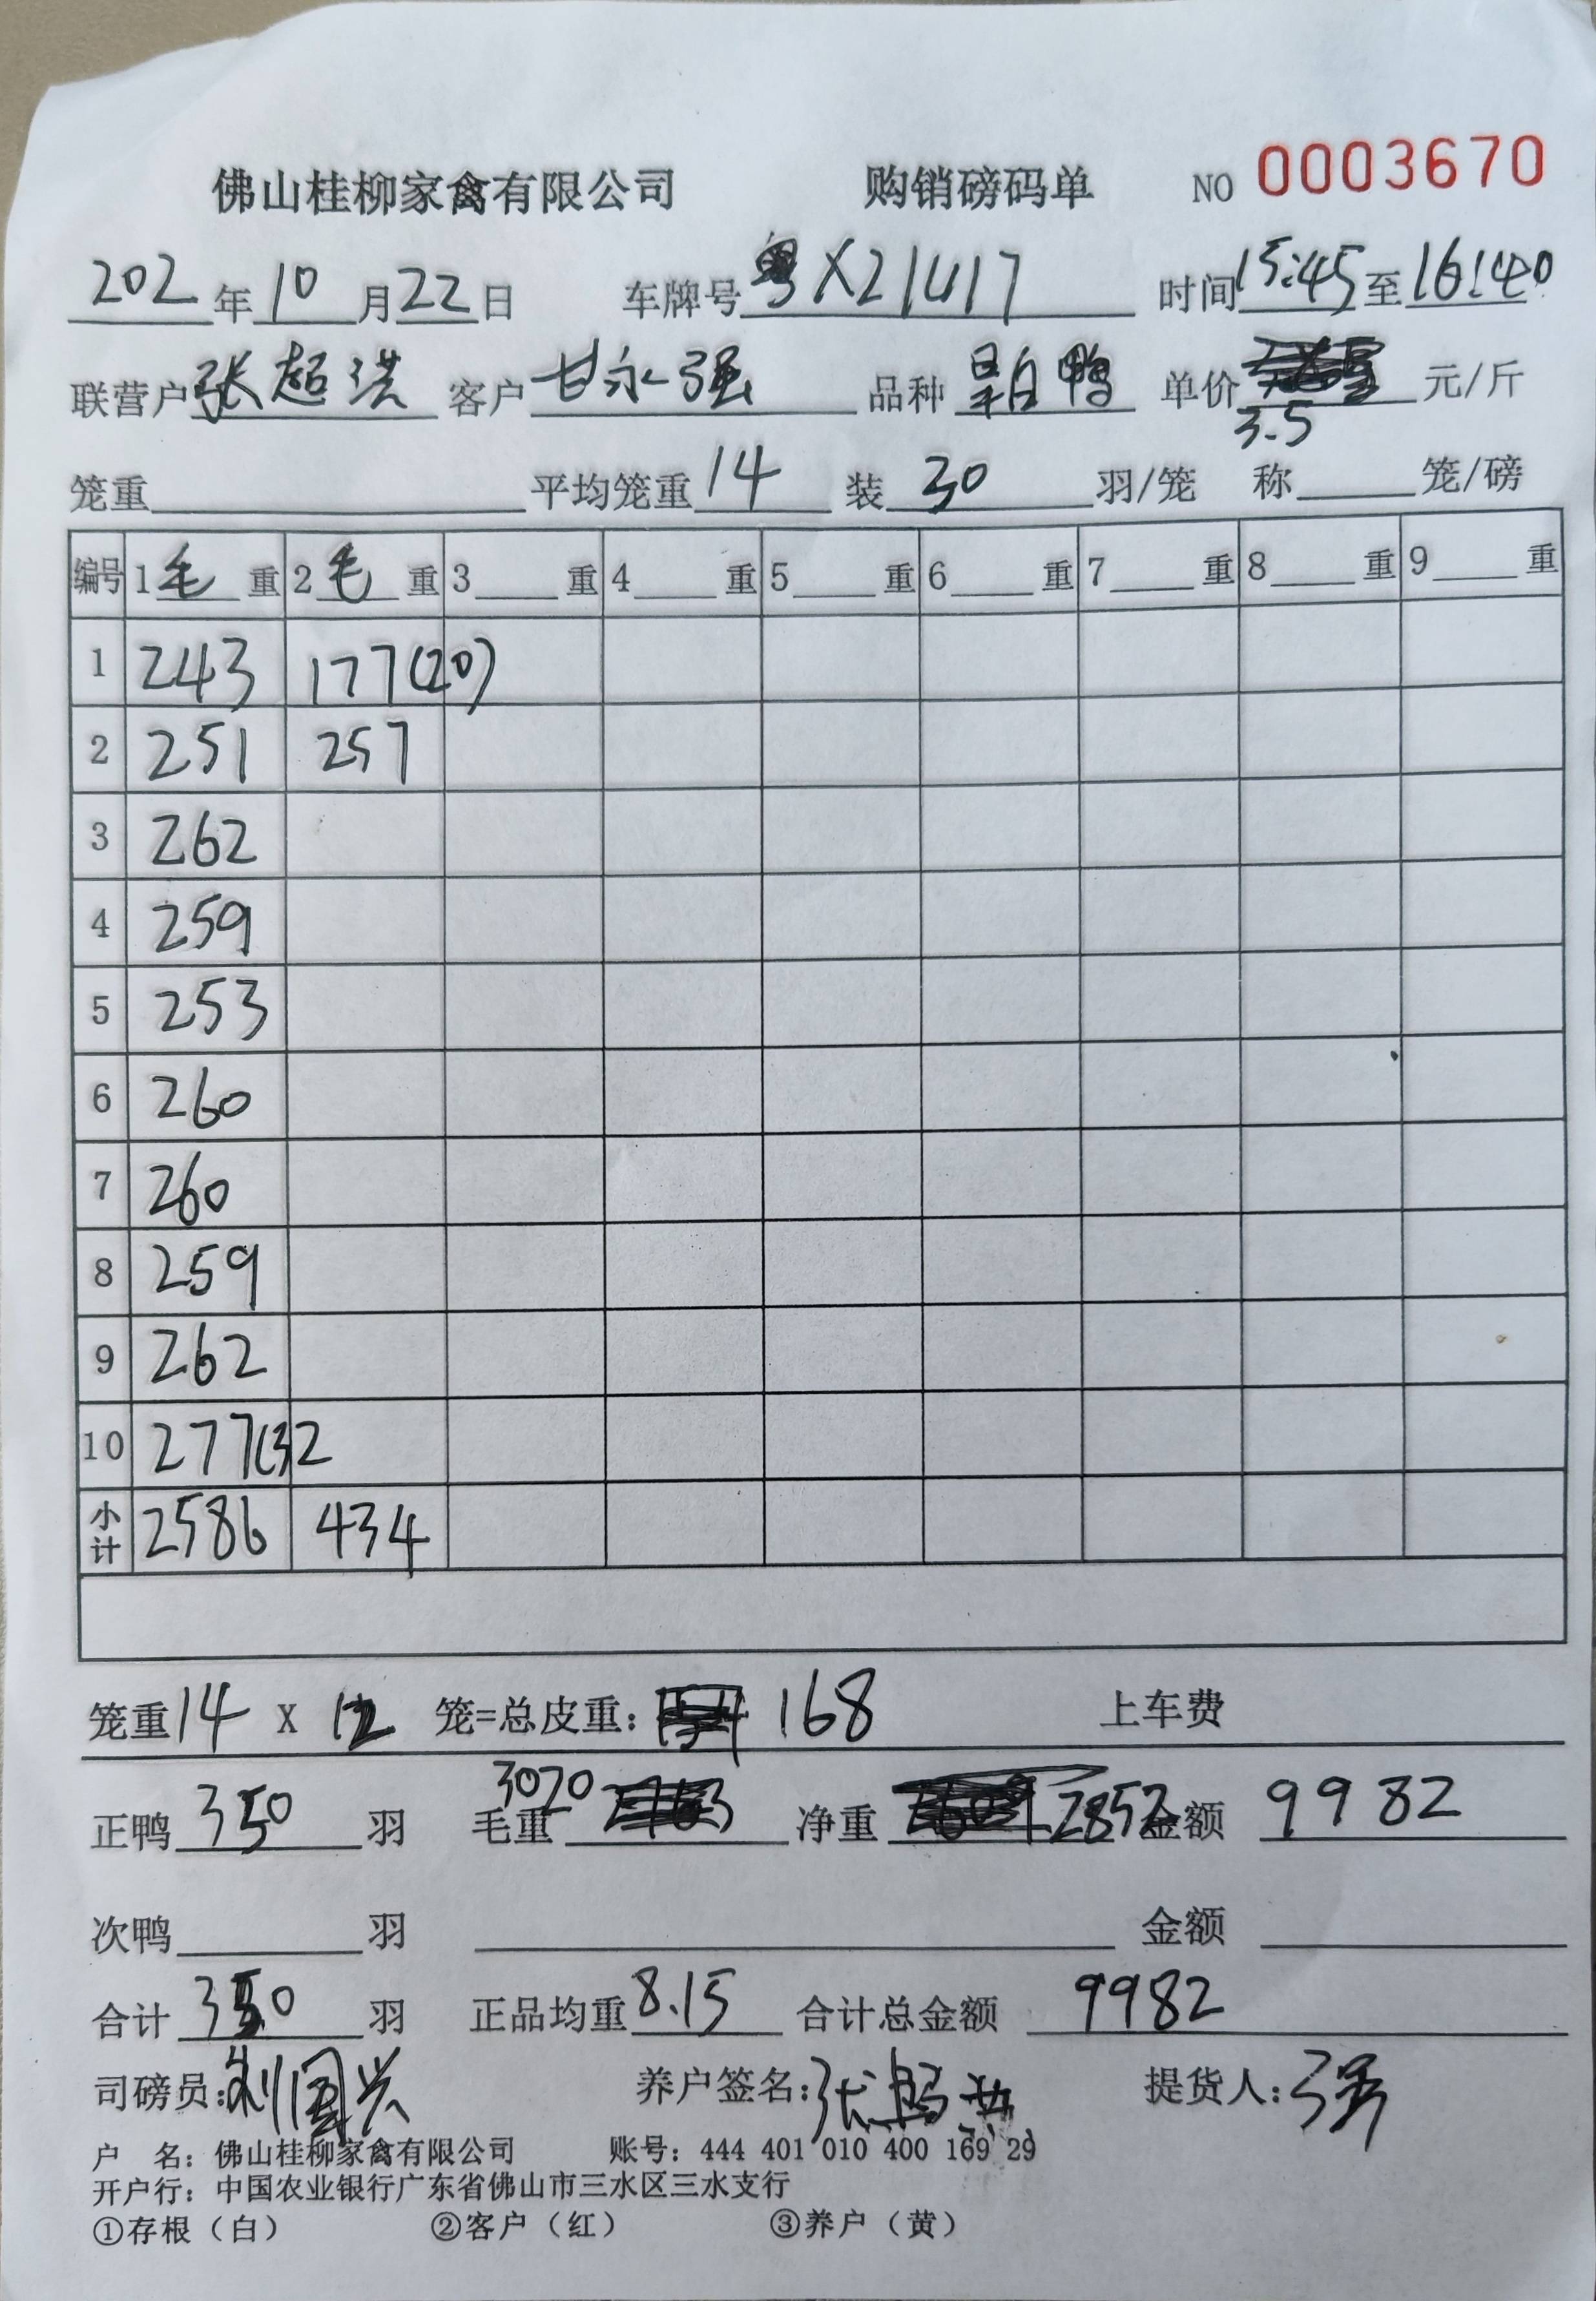 佛山桂柳家禽有限公司 购销磅码单 NO 0003670
202 年 10 月 22 日 车牌号 粤X21417 时间 15:45 至 16:40
联营户 张超洪 客户 甘永强 品种 白鸭 单价 3.5 元/斤
笼重 平均笼重 14 装 30 羽/笼 称 笼/磅
编号 1 毛 重 2 毛 重 3 重 4 重 5 重 6 重 7 重 8 重 9 重
1 243 177(20)
2 251 257
3 262
4 259
5 253
6 260
7 260
8 259
9 262
10 277(32
小计 2586 434
笼重 14 X 12 笼=总皮重: 168 上车费
正鸭 350 羽 毛重 3020 净重 2852 金额 9982
次鸭 羽 金额
合计 350 羽 正品均重 8.15 合计总金额 9982
司磅员: 刘国兴 养户签名: 张超洪 提货人: 强
户 名: 佛山桂柳家禽有限公司 账号: 444 401 010 400 169 29
开户行: 中国农业银行广东省佛山市三水区三水支行
①存根（白） ②客户（红） ③养户（黄）